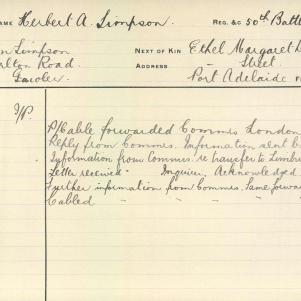 NAME Herbert A. Simpson. REG. &c 50th Batt
n Simpson NEXT OF KIN Ethel Margaret
lton Road. ADDRESS — Street.
Gawler. Port Adelaide
I/P.
P/Cable forwarded Commrs London
Reply from Commrs. Information sent
Information from Commrs. re transfer to
Letter received. Inquirer. Acknowledged
Further information from Commrs. Same forwar
Cabled " " " "